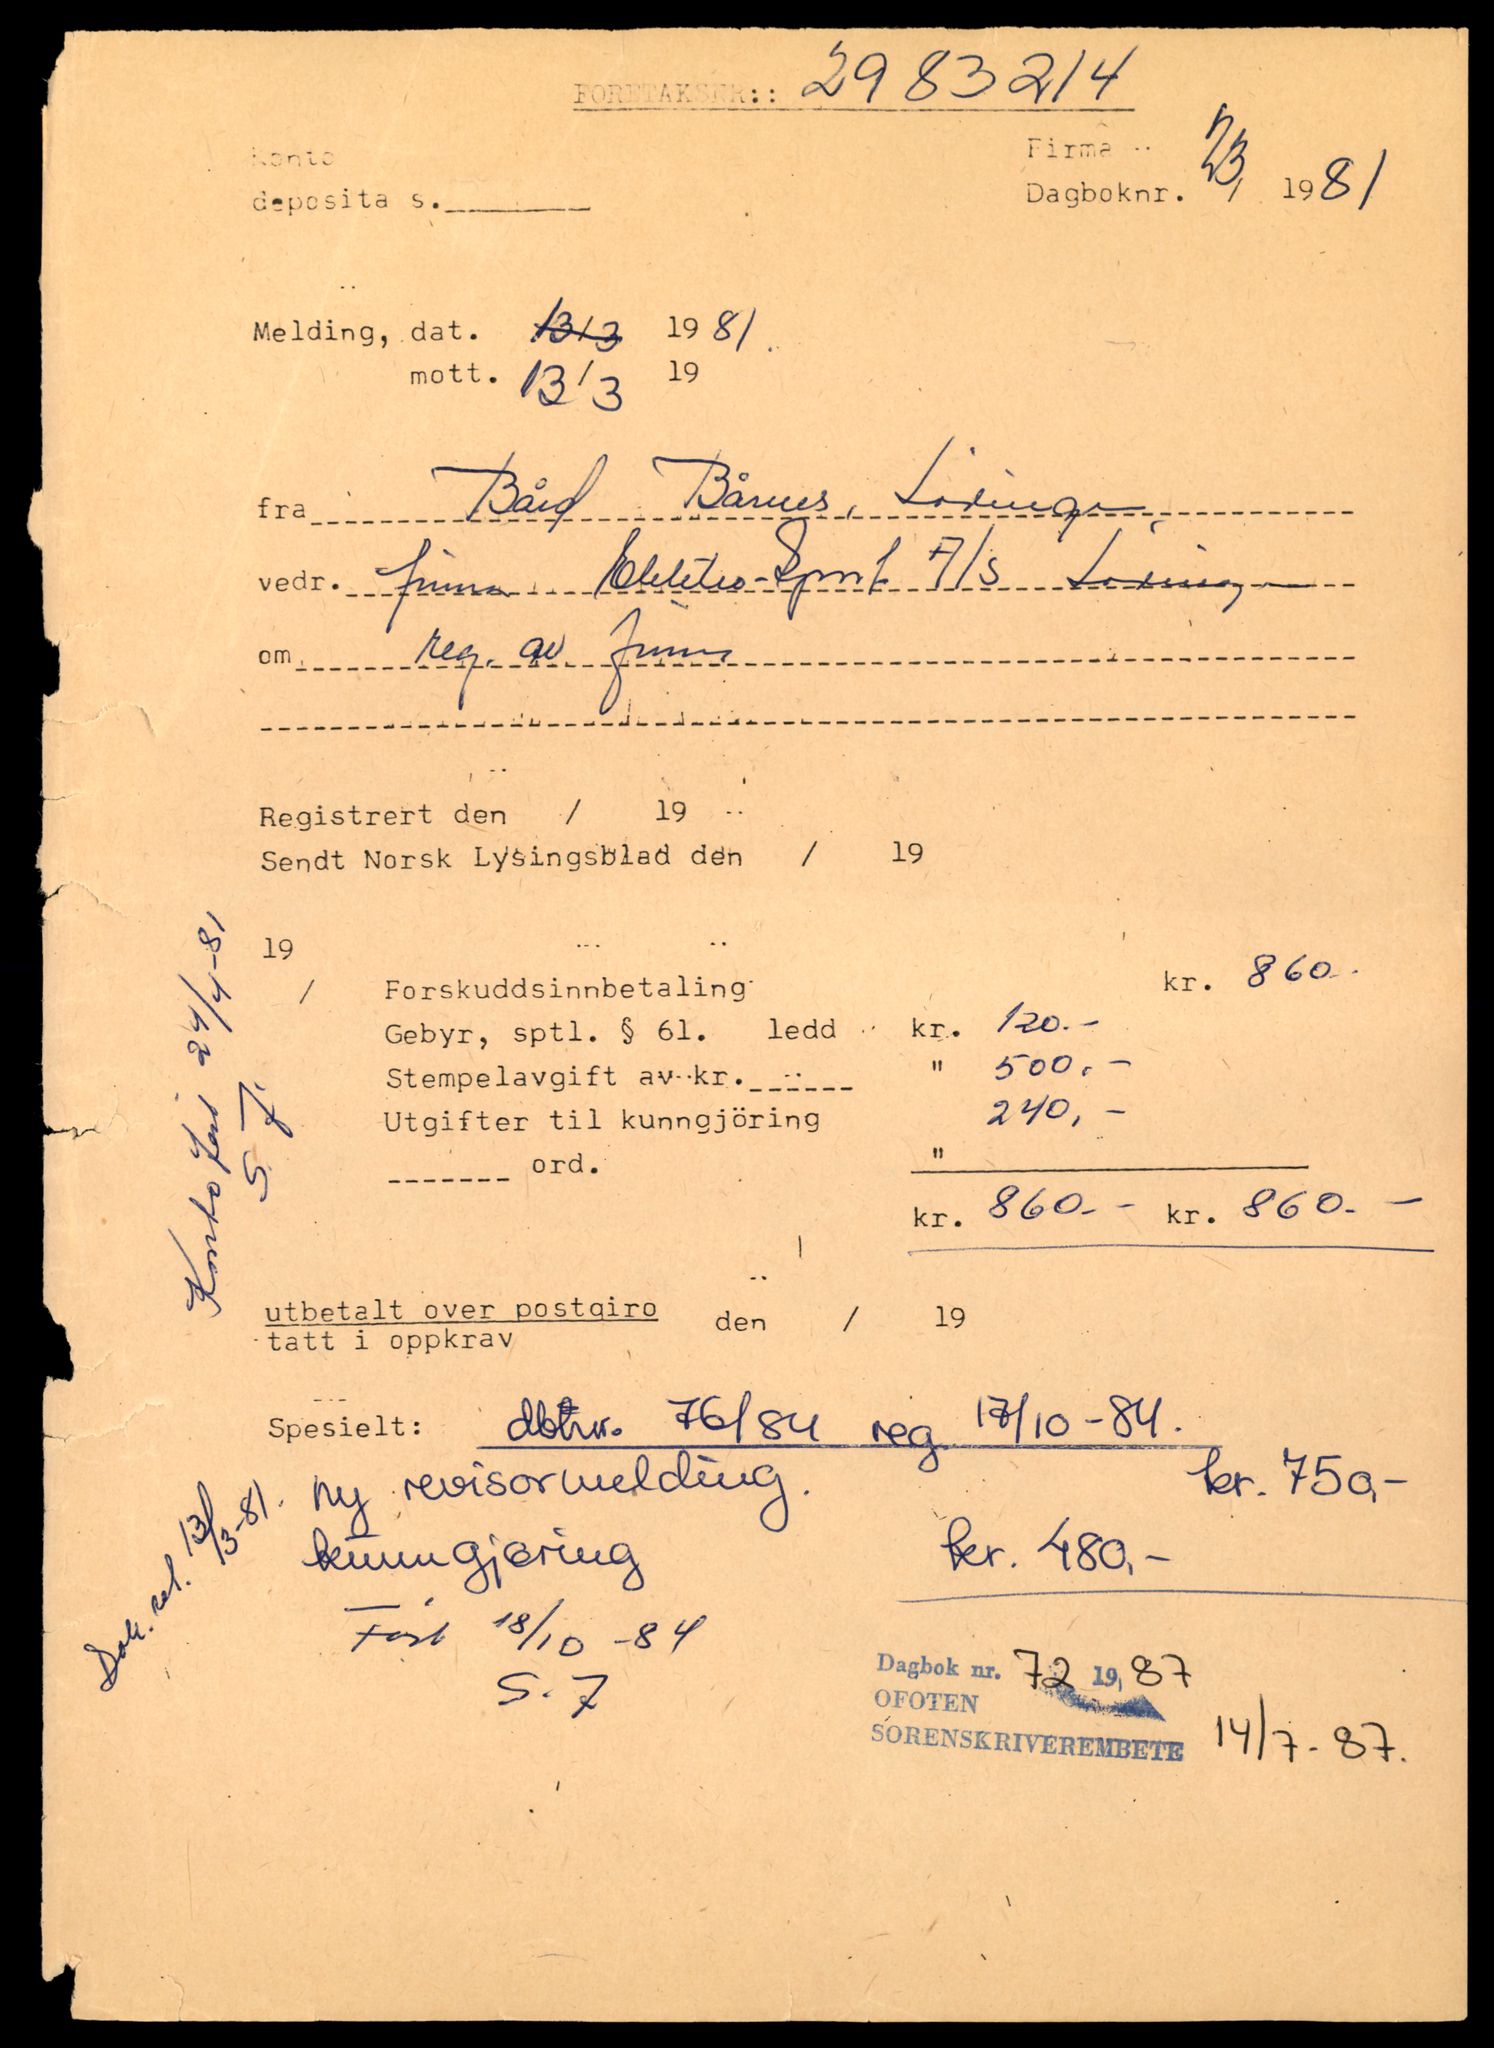 FORETAKSNR.: 2983214
Konto
Firma
deposita s. Dagboknr. 23, 1981
Melding, dat. 13/3 1981.
mott. 13/3 19
fra Bård Bårnes, Lødingen,
vedr. firma Elektro-Sport A/S Lødingen
om reg. av firma
Registrert den / 19
Sendt Norsk Lysingsblad den / 19
19
/ Forskuddsinnbetaling kr. 860.-
Gebyr, sptl. § 61. ledd kr. 120.-
Stempelavgift av kr. " 500.-
Utgifter til kunngjöring 240,-
ord. "
kr. 860.- kr. 860.-
Konto ført 24/4-81
S. 7.
utbetalt over postgiro
tatt i oppkrav den / 19
Spesielt: dbknr. 76/84 reg. 17/10-84.
ny revisormelding. kr. 750,-
kunngjøring kr. 480,-
Dok. ret. 13/3-81.
Ført 18/10-84
S. 7
Dagbok nr. 72 19,87
OFOTEN
SORENSKRIVEREMBETE 14/7-87.